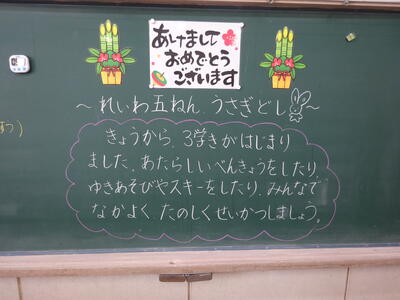 あけまして
おめでとう
ございます
～れいわ五ねん、うさぎどし～
きょうから、3学きがはじまり
ました。あたらしいべんきょうをしたり、
ゆきあそびやスキーをしたり、みんなで
なかよく、たのしくせいかつしましょう。